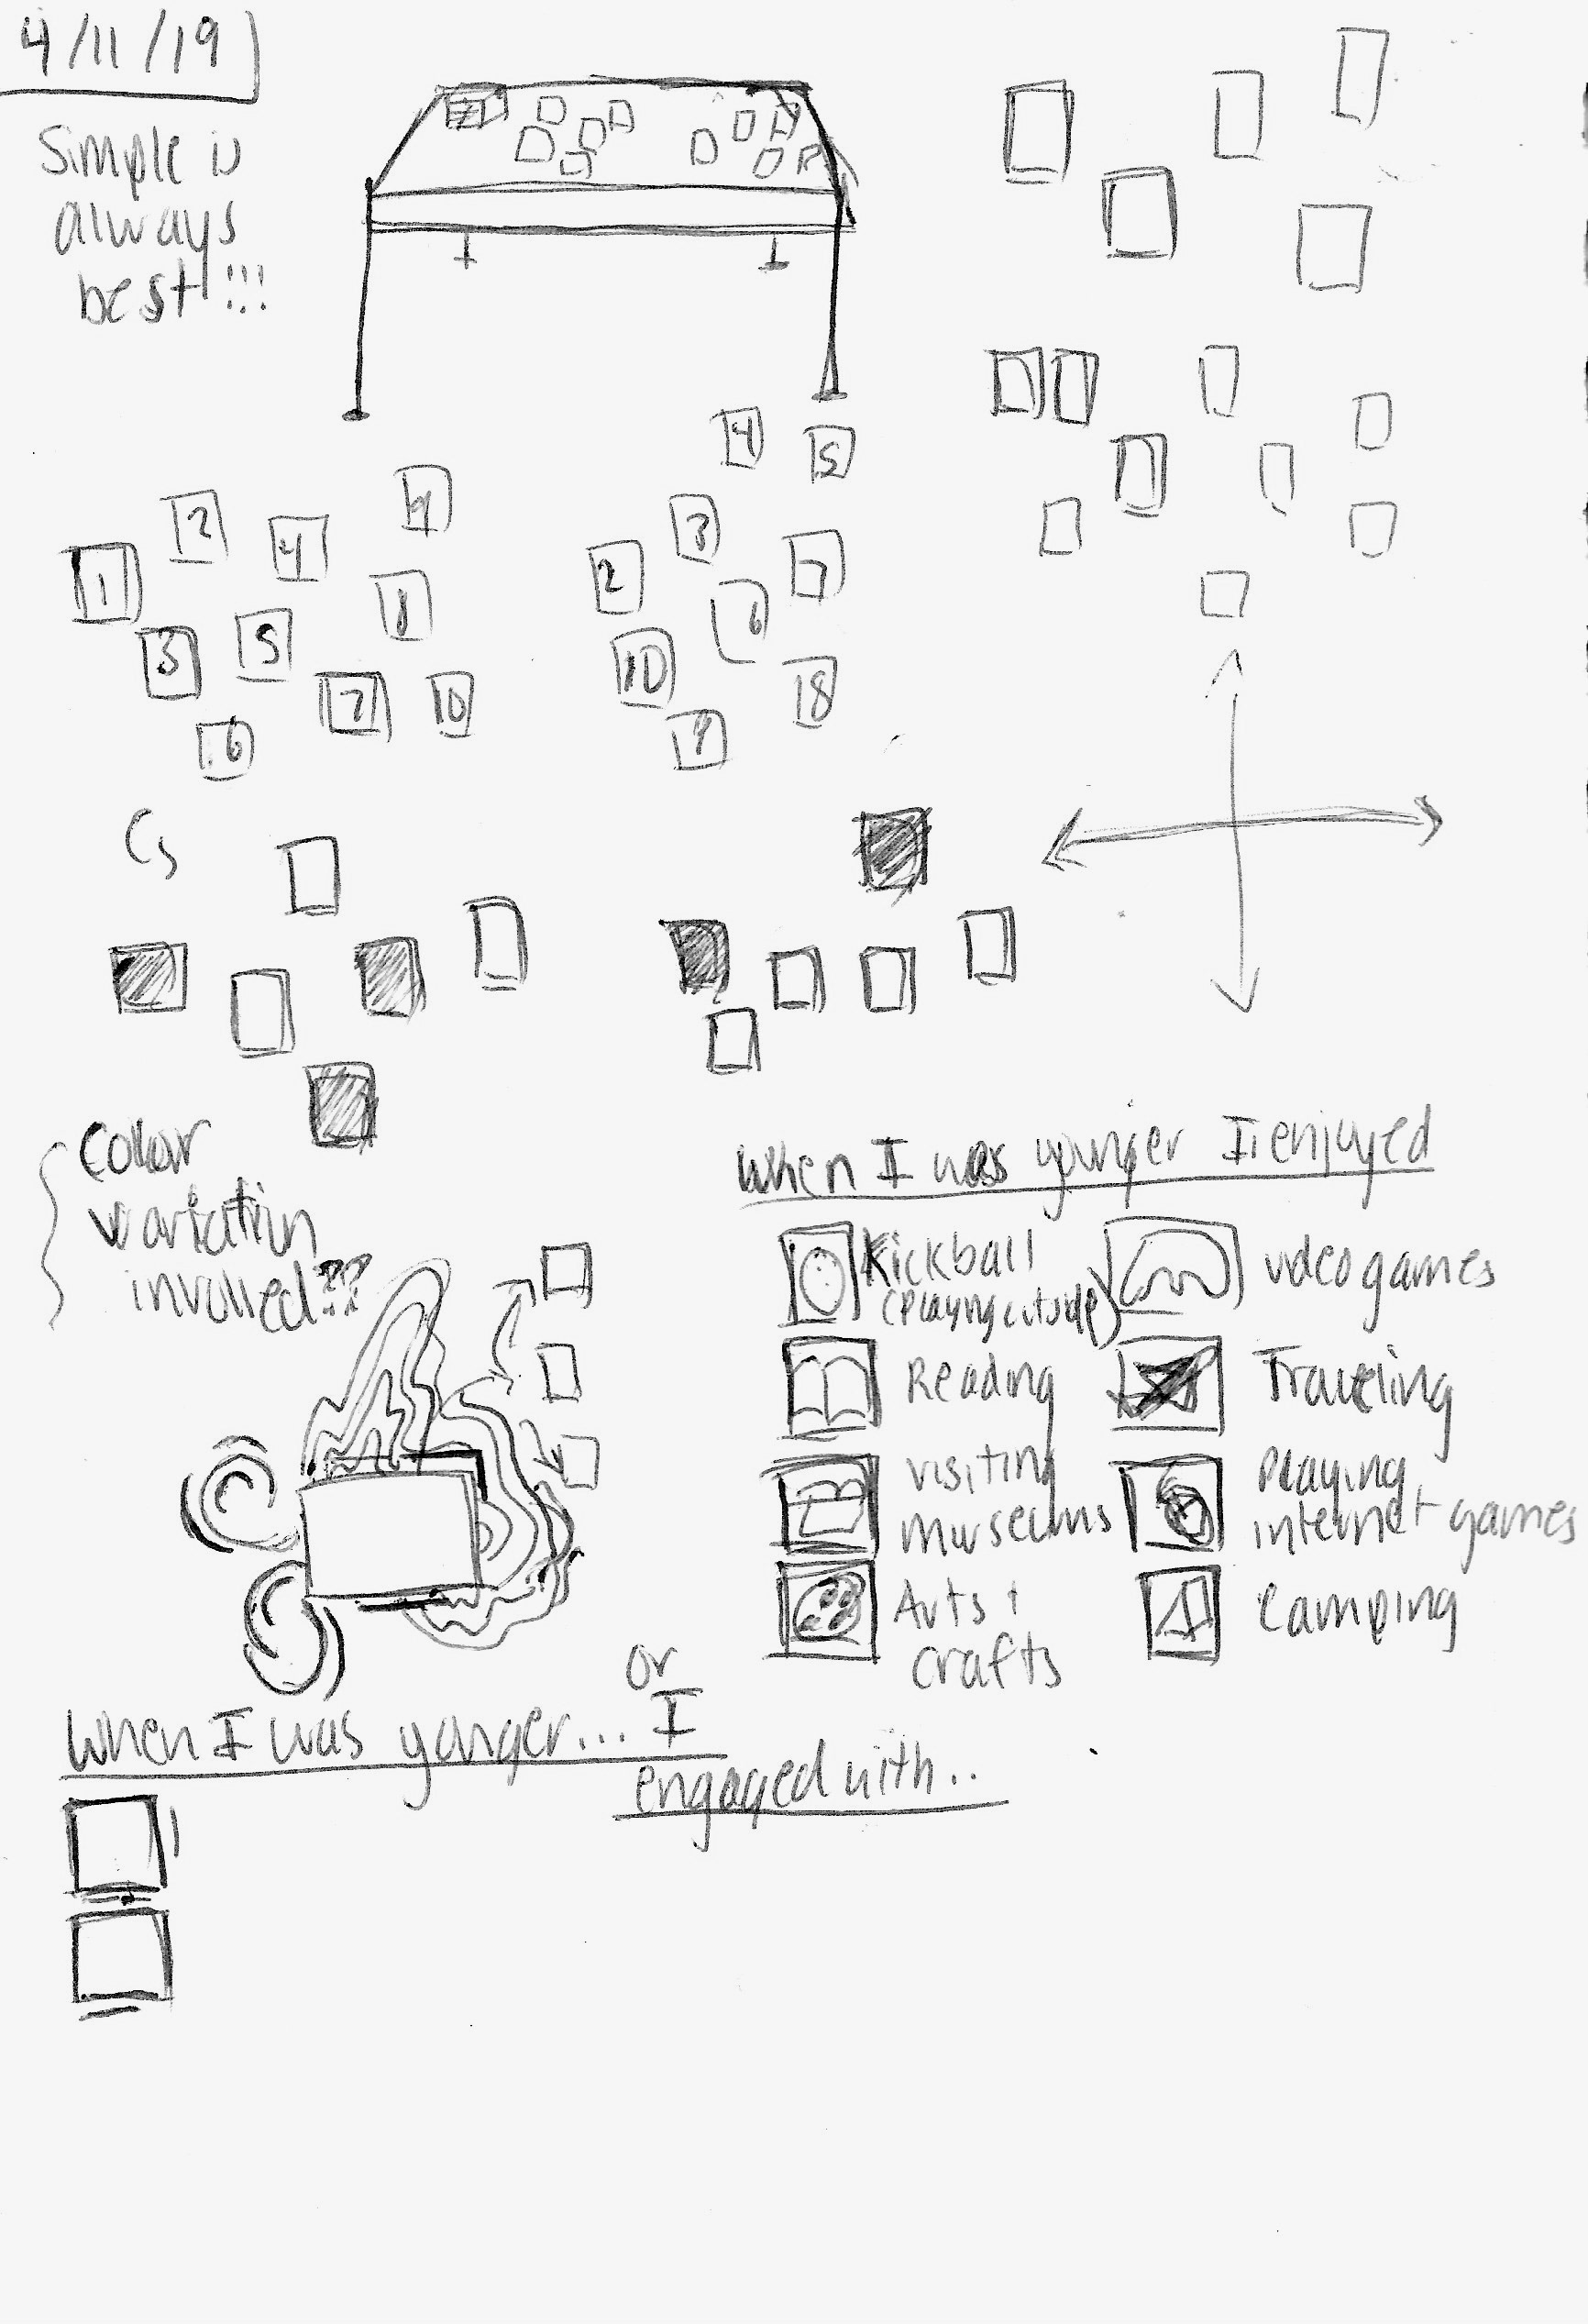 4/11/19
Simple is
always
best!!!
4
5
2
4
9
3
1
2
7
8
6
3
5
10
18
7
10
6
9
Color
variation
involved??
When I was younger I enjoyed
Kickball
(playing outside)
videogames
Reading
Traveling
visiting
museums
playing
internet games
Arts +
crafts
camping
or
When I was yonger... I
engaged with..